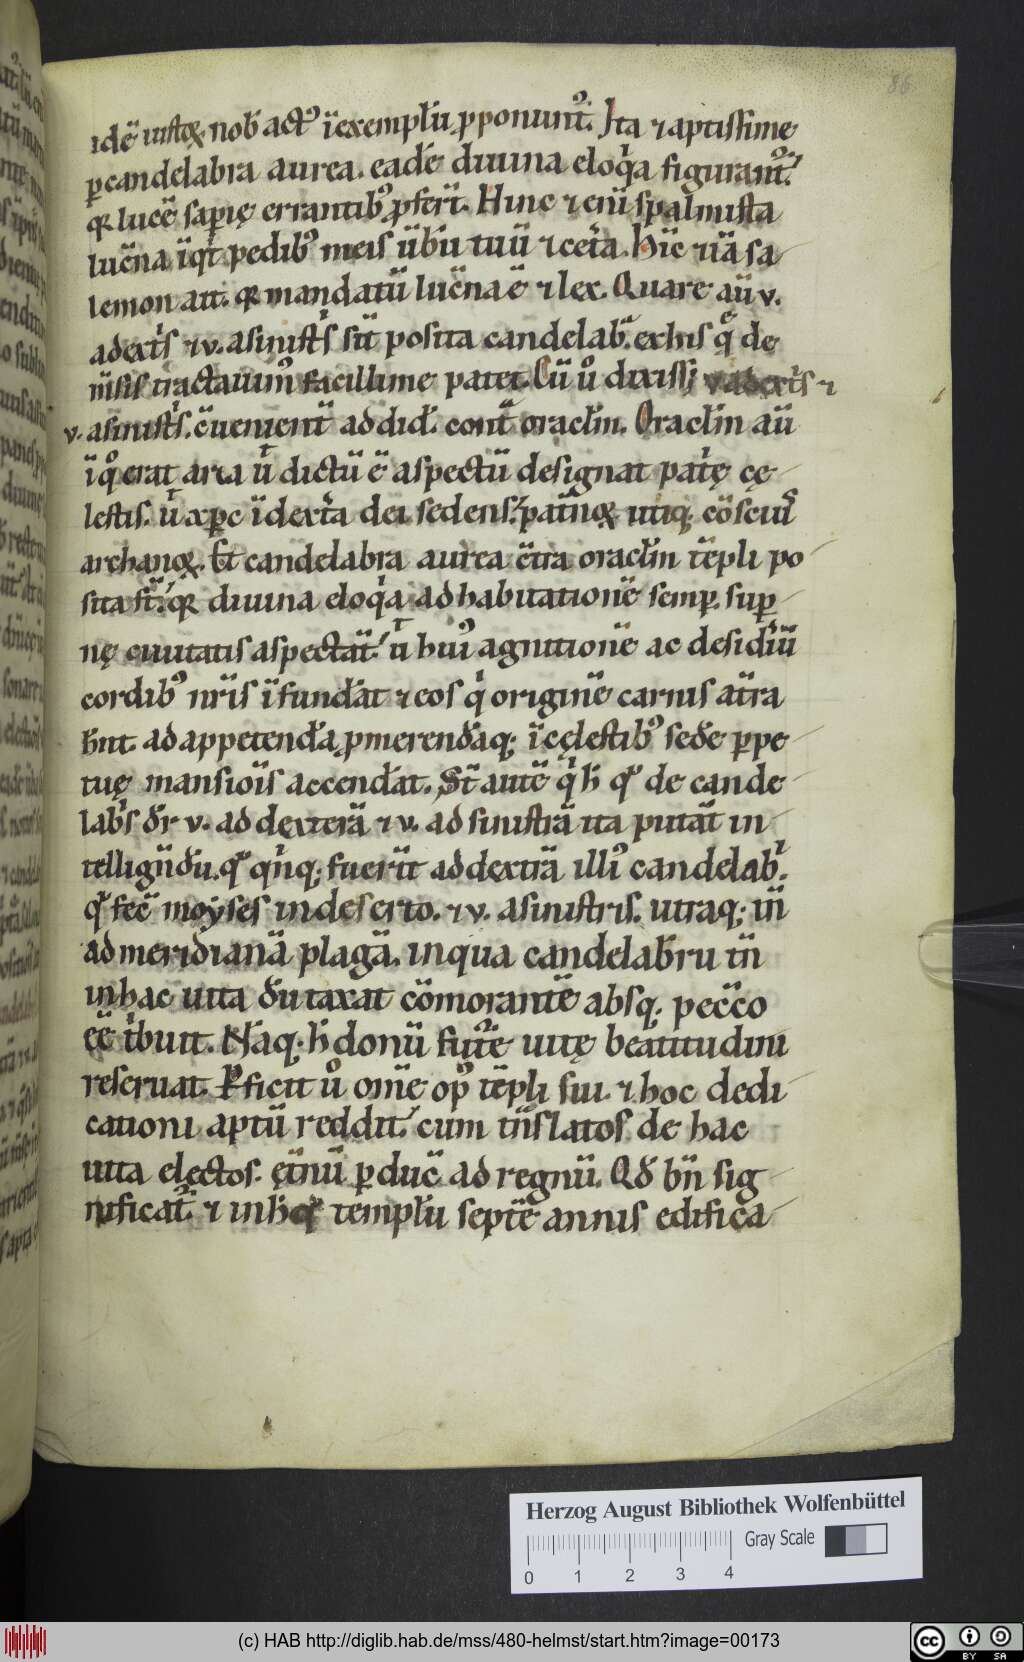 86
idē iustoꝝ nob̄ act᷒ ī exemplū ꝓponunt᷑. Ita ⁊ aptissime
ꝑ candelabra aurea. eadē diuina eloq̇a figurant᷑.
qꝛ lucē sapię errantib᷒ ꝓfert̄. Hinc ⁊ enī spalmista
luc̄na īqt̄ pedib᷒ meis ūbū tuū ⁊ cet̄a. Hīc ⁊ iā sa
lemon ait. qꝛ mandatū luc̄na ē ⁊ lex. Quare aū v.
a dext̓s ⁊ v. a sinist̓s sīt posita candelab̄. ex his q̄ de
m̄sis tractauim᷒ facillime patet. Cū ů dixiss; v. a dext̓s ⁊
v. a sinist̓s. c̄uenient̄ addid̄. cont̄ oraclm̄. Oraclm̄ aū
ī q̊ erat arca ů dictū ē aspectū designat pat̓ę cę
lestis. ů xp̄c ī dext̓a dei sedens. pat̄noꝝ utiq; cōsciu᷒
archanoꝝ. Et candelabra aurea c̄tra oraclm̄ tēpli po
sita st̄. qꝛ diuina eloq̇a ad habitationē semp̱. sup̱
nę ciuitatis aspectāt. ů hui᷒ agnitionē ac desid̓iū
cordib᷒ nr̄is īfundāt ⁊ eos q̇ originē carnis at̄ra
hn̄t. ad appetendā ꝓmerendāq; ī cęlestib᷒ sedē ꝑpe
tuę mansiōis accendāt. St̄ autē q̇ h̄ qd̄ de cande
lab̓s dr̄ v. ad dexterā ⁊ v. ad sinistrā ita putāt in
telligendū. qd̄ qn̓q; fuerīt ad dextrā illi᷒ candelab̓.
qd̄ fec̄ moẏses in deserto. ⁊ v. a sinistris. utraq; tn̄
ad meridianā plagā. in qua candelabrū tn̄
in hac uita dūtaxat cōmorantē absq; pecc̄o
eē t̓buit. Nāq; h̄ donū fut᷑ę uitę beatitudini
reseruat. Ꝑficit ů om̄e op᷒ tēpli sui. ⁊ hoc dedi
cationi aptū reddit. cum tn̄slatos de hac
uita electos. ęt̄nū ꝑducī ad regnū. Qd̄ bn̄ sig
nificat᷑. ⁊ in h̄ qd̄ templū septē annis edifica
Herzog August Bibliothek Wolfenbüttel
Gray Scale
0 1 2 3 4
(c) HAB http://diglib.hab.de/mss/480-helmst/start.htm?image=00173
cc BY SA